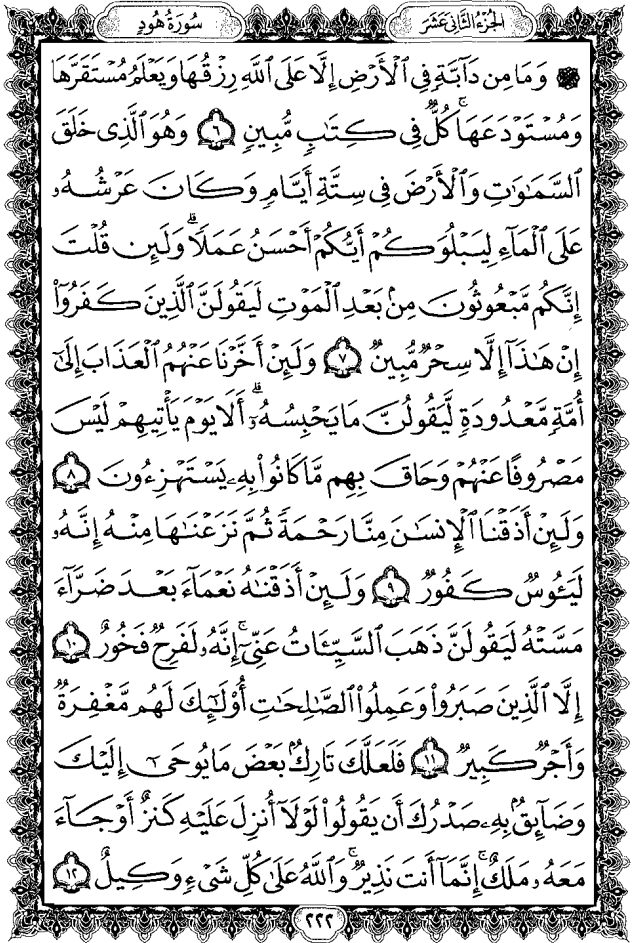 الجزء الثاني عشر
سورة هود
۞ وَمَا مِن دَآبَّةٍ فِي ٱلْأَرْضِ إِلَّا عَلَى ٱللَّهِ رِزْقُهَا وَيَعْلَمُ مُسْتَقَرَّهَا
وَمُسْتَوْدَعَهَا ۚ كُلٌّ فِي كِتَٰبٍ مُّبِينٍ ٦ وَهُوَ ٱلَّذِي خَلَقَ
ٱلسَّمَٰوَٰتِ وَٱلْأَرْضَ فِي سِتَّةِ أَيَّامٍ وَكَانَ عَرْشُهُۥ
عَلَى ٱلْمَآءِ لِيَبْلُوَكُمْ أَيُّكُمْ أَحْسَنُ عَمَلًا ۗ وَلَئِن قُلْتَ
إِنَّكُم مَّبْعُوثُونَ مِنۢ بَعْدِ ٱلْمَوْتِ لَيَقُولَنَّ ٱلَّذِينَ كَفَرُوٓا۟
إِنْ هَٰذَآ إِلَّا سِحْرٌ مُّبِينٌ ٧ وَلَئِنْ أَخَّرْنَا عَنْهُمُ ٱلْعَذَابَ إِلَىٰٓ
أُمَّةٍ مَّعْدُودَةٍ لَّيَقُولُنَّ مَا يَحْبِسُهُۥٓ ۗ أَلَا يَوْمَ يَأْتِيهِمْ لَيْسَ
مَصْرُوفًا عَنْهُمْ وَحَاقَ بِهِم مَّا كَانُوا۟ بِهِۦ يَسْتَهْزِءُونَ ٨
وَلَئِنْ أَذَقْنَا ٱلْإِنسَٰنَ مِنَّا رَحْمَةً ثُمَّ نَزَعْنَٰهَا مِنْهُ إِنَّهُۥ
لَيَـُٔوسٌ كَفُورٌ ٩ وَلَئِنْ أَذَقْنَٰهُ نَعْمَآءَ بَعْدَ ضَرَّآءَ
مَسَّتْهُ لَيَقُولَنَّ ذَهَبَ ٱلسَّيِّـَٔاتُ عَنِّيٓ ۚ إِنَّهُۥ لَفَرِحٌ فَخُورٌ ١٠
إِلَّا ٱلَّذِينَ صَبَرُوا۟ وَعَمِلُوا۟ ٱلصَّٰلِحَٰتِ أُو۟لَٰٓئِكَ لَهُم مَّغْفِرَةٌ
وَأَجْرٌ كَبِيرٌ ١١ فَلَعَلَّكَ تَارِكٌۢ بَعْضَ مَا يُوحَىٰٓ إِلَيْكَ
وَضَآئِقٌۢ بِهِۦ صَدْرُكَ أَن يَقُولُوا۟ لَوْلَآ أُنزِلَ عَلَيْهِ كَنزٌ أَوْ جَآءَ
مَعَهُۥ مَلَكٌ ۚ إِنَّمَآ أَنتَ نَذِيرٌ ۚ وَٱللَّهُ عَلَىٰ كُلِّ شَىْءٍ وَكِيلٌ ١٢
٢٢٢